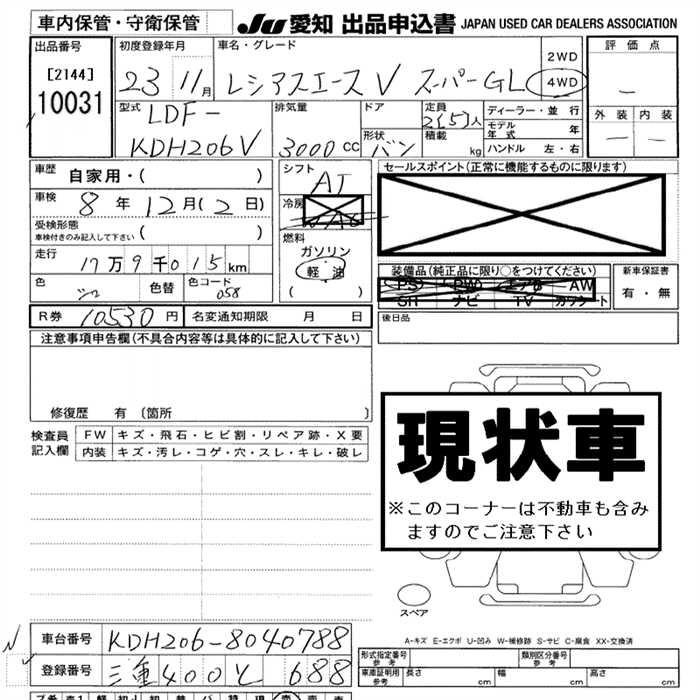 車内保管・守衛保管
JU 愛知 出品申込書 JAPAN USED CAR DEALERS ASSOCIATION
出品番号 初度登録年月 車名・グレード 評価点
[2144]
10031
23 11月 レジアスエース V スーパーGL 2WD 4WD
外装 内装
型式 LDF-
KDH206V
排気量 3000cc
ドア
定員 2(5)人
形状 バン 積載 kg
ディーラー・並行
モデル年式 年
ハンドル 左・右
車歴 自家用・( )
車検 8年 12月(2日)
受検形態
車検付きのみ記入して下さい ( )
走行 17万9千015km
色 シロ 色替 色コード 058
シフト AT
冷房
燃料 ガソリン
軽油
( )
セールスポイント(正常に機能するものに限ります)
装備品(純正品に限り○をつけてください) 新車保証書
PS PW エアB AW
SH ナビ TV カワシート
有・無
後日品
R券 10530円 名変通知期限 月 日
注意事項申告欄(不具合内容等は具体的に記入して下さい)
修復歴 有 〔箇所 〕
検査員記入欄
FW キズ・飛石・ヒビ割・リペア跡・X要
内装 キズ・汚レ・コゲ・穴・スレ・キレ・破レ
現状車
※このコーナーは不動車も含み
ますのでご注意下さい
スペア
A-キズ E-エクボ U-凹み W-補修跡 S-サビ C-腐食 XX-交換済
車台番号 KDH206-8040788
登録番号 三重 400 そ 688
形式指定番号 参考 類別区分番号 参考
車庫証明用 参考 長さ cm 幅 cm 高さ cm